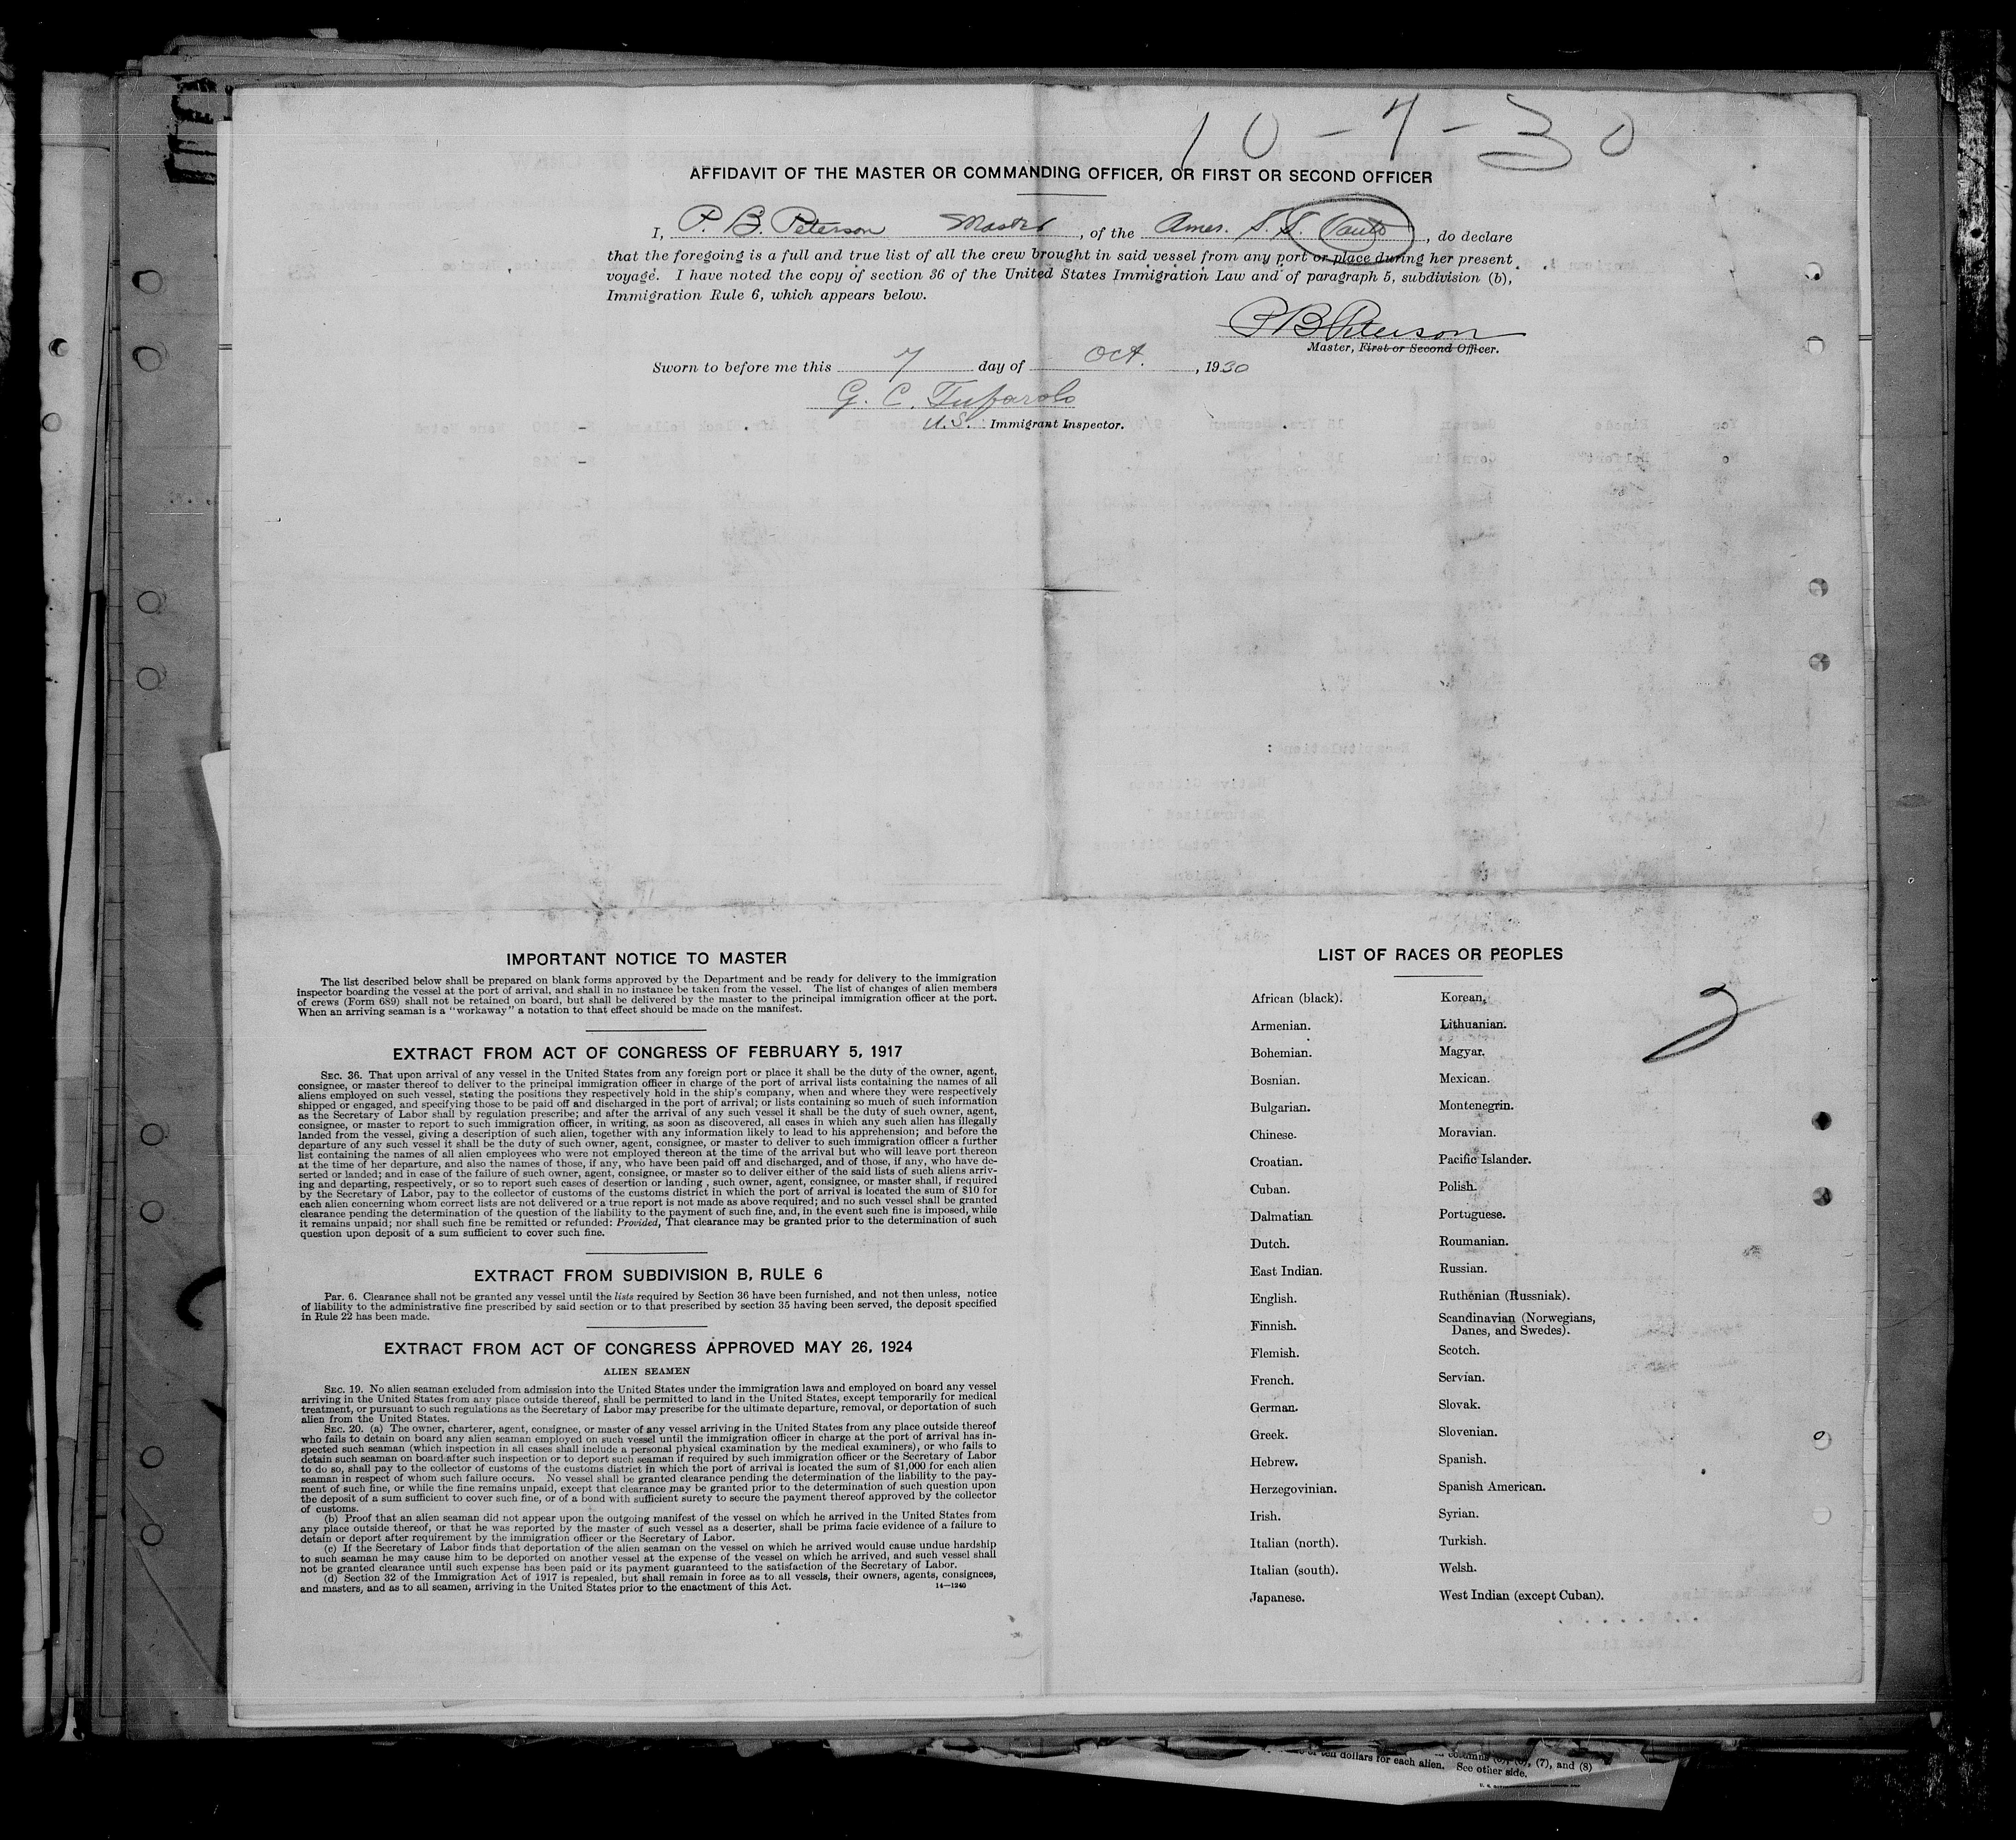 10-7-30
AFFIDAVIT OF THE MASTER OR COMMANDING OFFICER, OR FIRST OR SECOND OFFICER
I, P. B. Peterson Master, of the Amer. S. S., do declare
that the foregoing is a full and true list of all the crew brought in said vessel from any port or place during her present
voyage. I have noted the copy of section 36 of the United States Immigration Law and of paragraph 5, subdivision (b),
Immigration Rule 6, which appears below.
P B Peterson
Master, First or Second Officer.
Sworn to before me this 7 day of Oct., 1930
G. C. Tufarolo
U.S. Immigrant Inspector.
IMPORTANT NOTICE TO MASTER
The list described below shall be prepared on blank forms approved by the Department and be ready for delivery to the immigration
inspector boarding the vessel at the port of arrival, and shall in no instance be taken from the vessel. The list of changes of alien members
of crews (Form 689) shall not be retained on board, but shall be delivered by the master to the principal immigration officer at the port.
When an arriving seaman is a "workaway" a notation to that effect should be made on the manifest.
EXTRACT FROM ACT OF CONGRESS OF FEBRUARY 5, 1917
SEC. 36. That upon arrival of any vessel in the United States from any foreign port or place it shall be the duty of the owner, agent,
consignee, or master thereof to deliver to the principal immigration officer in charge of the port of arrival lists containing the names of all
aliens employed on such vessel, stating the positions they respectively hold in the ship's company, when and where they were respectively
shipped or engaged, and specifying those to be paid off and discharged in the port of arrival; or lists containing so much of such information
as the Secretary of Labor shall by regulation prescribe; and after the arrival of any such vessel it shall be the duty of such owner, agent,
consignee, or master to report to such immigration officer, in writing, as soon as discovered, all cases in which any such alien has illegally
landed from the vessel, giving a description of such alien, together with any information likely to lead to his apprehension; and before the
departure of any such vessel it shall be the duty of such owner, agent, consignee, or master to deliver to such immigration officer a further
list containing the names of all alien employees who were not employed thereon at the time of the arrival but who will leave port thereon
at the time of her departure, and also the names of those, if any, who have been paid off and discharged, and of those, if any, who have de-
serted or landed; and in case of the failure of such owner, agent, consignee, or master so to deliver either of the said lists of such aliens arriv-
ing and departing, respectively, or so to report such cases of desertion or landing , such owner, agent, consignee, or master shall, if required
by the Secretary of Labor, pay to the collector of customs of the customs district in which the port of arrival is located the sum of $10 for
each alien concerning whom correct lists are not delivered or a true report is not made as above required; and no such vessel shall be granted
clearance pending the determination of the question of the liability to the payment of such fine, and, in the event such fine is imposed, while
it remains unpaid; nor shall such fine be remitted or refunded: Provided, That clearance may be granted prior to the determination of such
question upon deposit of a sum sufficient to cover such fine.
EXTRACT FROM SUBDIVISION B, RULE 6
Par. 6. Clearance shall not be granted any vessel until the lists required by Section 36 have been furnished, and not then unless, notice
of liability to the administrative fine prescribed by said section or to that prescribed by section 35 having been served, the deposit specified
in Rule 22 has been made.
EXTRACT FROM ACT OF CONGRESS APPROVED MAY 26, 1924
ALIEN SEAMEN
SEC. 19. No alien seaman excluded from admission into the United States under the immigration laws and employed on board any vessel
arriving in the United States from any place outside thereof, shall be permitted to land in the United States, except temporarily for medical
treatment, or pursuant to such regulations as the Secretary of Labor may prescribe for the ultimate departure, removal, or deportation of such
alien from the United States.
SEC. 20. (a) The owner, charterer, agent, consignee, or master of any vessel arriving in the United States from any place outside thereof
who fails to detain on board any alien seaman employed on such vessel until the immigration officer in charge at the port of arrival has in-
spected such seaman (which inspection in all cases shall include a personal physical examination by the medical examiners), or who fails to
detain such seaman on board after such inspection or to deport such seaman if required by such immigration officer or the Secretary of Labor
to do so, shall pay to the collector of customs of the customs district in which the port of arrival is located the sum of $1,000 for each alien
seaman in respect of whom such failure occurs. No vessel shall be granted clearance pending the determination of the liability to the pay-
ment of such fine, or while the fine remains unpaid, except that clearance may be granted prior to the determination of such question upon
the deposit of a sum sufficient to cover such fine, or of a bond with sufficient surety to secure the payment thereof approved by the collector
of customs.
(b) Proof that an alien seaman did not appear upon the outgoing manifest of the vessel on which he arrived in the United States from
any place outside thereof, or that he was reported by the master of such vessel as a deserter, shall be prima facie evidence of a failure to
detain or deport after requirement by the immigration officer or the Secretary of Labor.
(c) If the Secretary of Labor finds that deportation of the alien seaman on the vessel on which he arrived would cause undue hardship
to such seaman he may cause him to be deported on another vessel at the expense of the vessel on which he arrived, and such vessel shall
not be granted clearance until such expense has been paid or its payment guaranteed to the satisfaction of the Secretary of Labor.
(d) Section 32 of the Immigration Act of 1917 is repealed, but shall remain in force as to all vessels, their owners, agents, consignees,
and masters, and as to all seamen, arriving in the United States prior to the enactment of this Act. 14—1240
LIST OF RACES OR PEOPLES
African (black).
Armenian.
Bohemian.
Bosnian.
Bulgarian.
Chinese.
Croatian.
Cuban.
Dalmatian.
Dutch.
East Indian.
English.
Finnish.
Flemish.
French.
German.
Greek.
Hebrew.
Herzegovinian.
Irish.
Italian (north).
Italian (south).
Japanese.
Korean.
Lithuanian.
Magyar.
Mexican.
Montenegrin.
Moravian.
Pacific Islander.
Polish.
Portuguese.
Roumanian.
Russian.
Ruthenian (Russniak).
Scandinavian (Norwegians,
Danes, and Swedes).
Scotch.
Servian.
Slovak.
Slovenian.
Spanish.
Spanish American.
Syrian.
Turkish.
Welsh.
West Indian (except Cuban).
2
of ten dollars for each alien. See other side.
columns (6), (7), and (8)